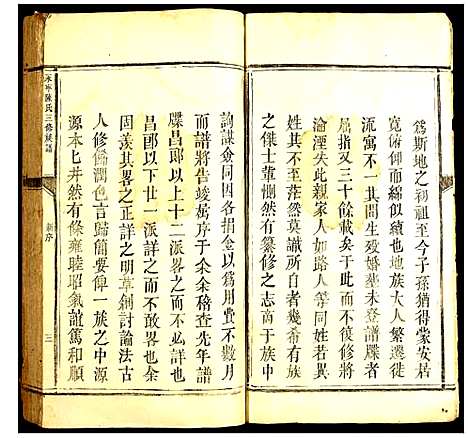 為斯地之初祖至今子孫猶得蒙安居
寬俯仰而綿似續也地族大人繁遷徙
流寓不一其間生歿婚塟未登譜牒者
屈指又三十餘載矣于此而不修恐久
淪湮失此親家人如路人等同姓若異
姓其不至茫然莫識所自者幾希有族
之傑士輩惻然有纂修之志商于族中
詢謀僉同因各捐金以為用費不數月
而譜將告竣萬序于余余稽查先年譜
牒昌郎以上十二派畧之而不序
昌郎以下廿一派詳之而不敢畧也余
固羨其畧之正詳之明草創討論法古
人修飾潤色言歸簡要俾一族之中源
源本七井然有條雍睦昭氣誼篤和順
永寧陳氏三修族譜
新序
三